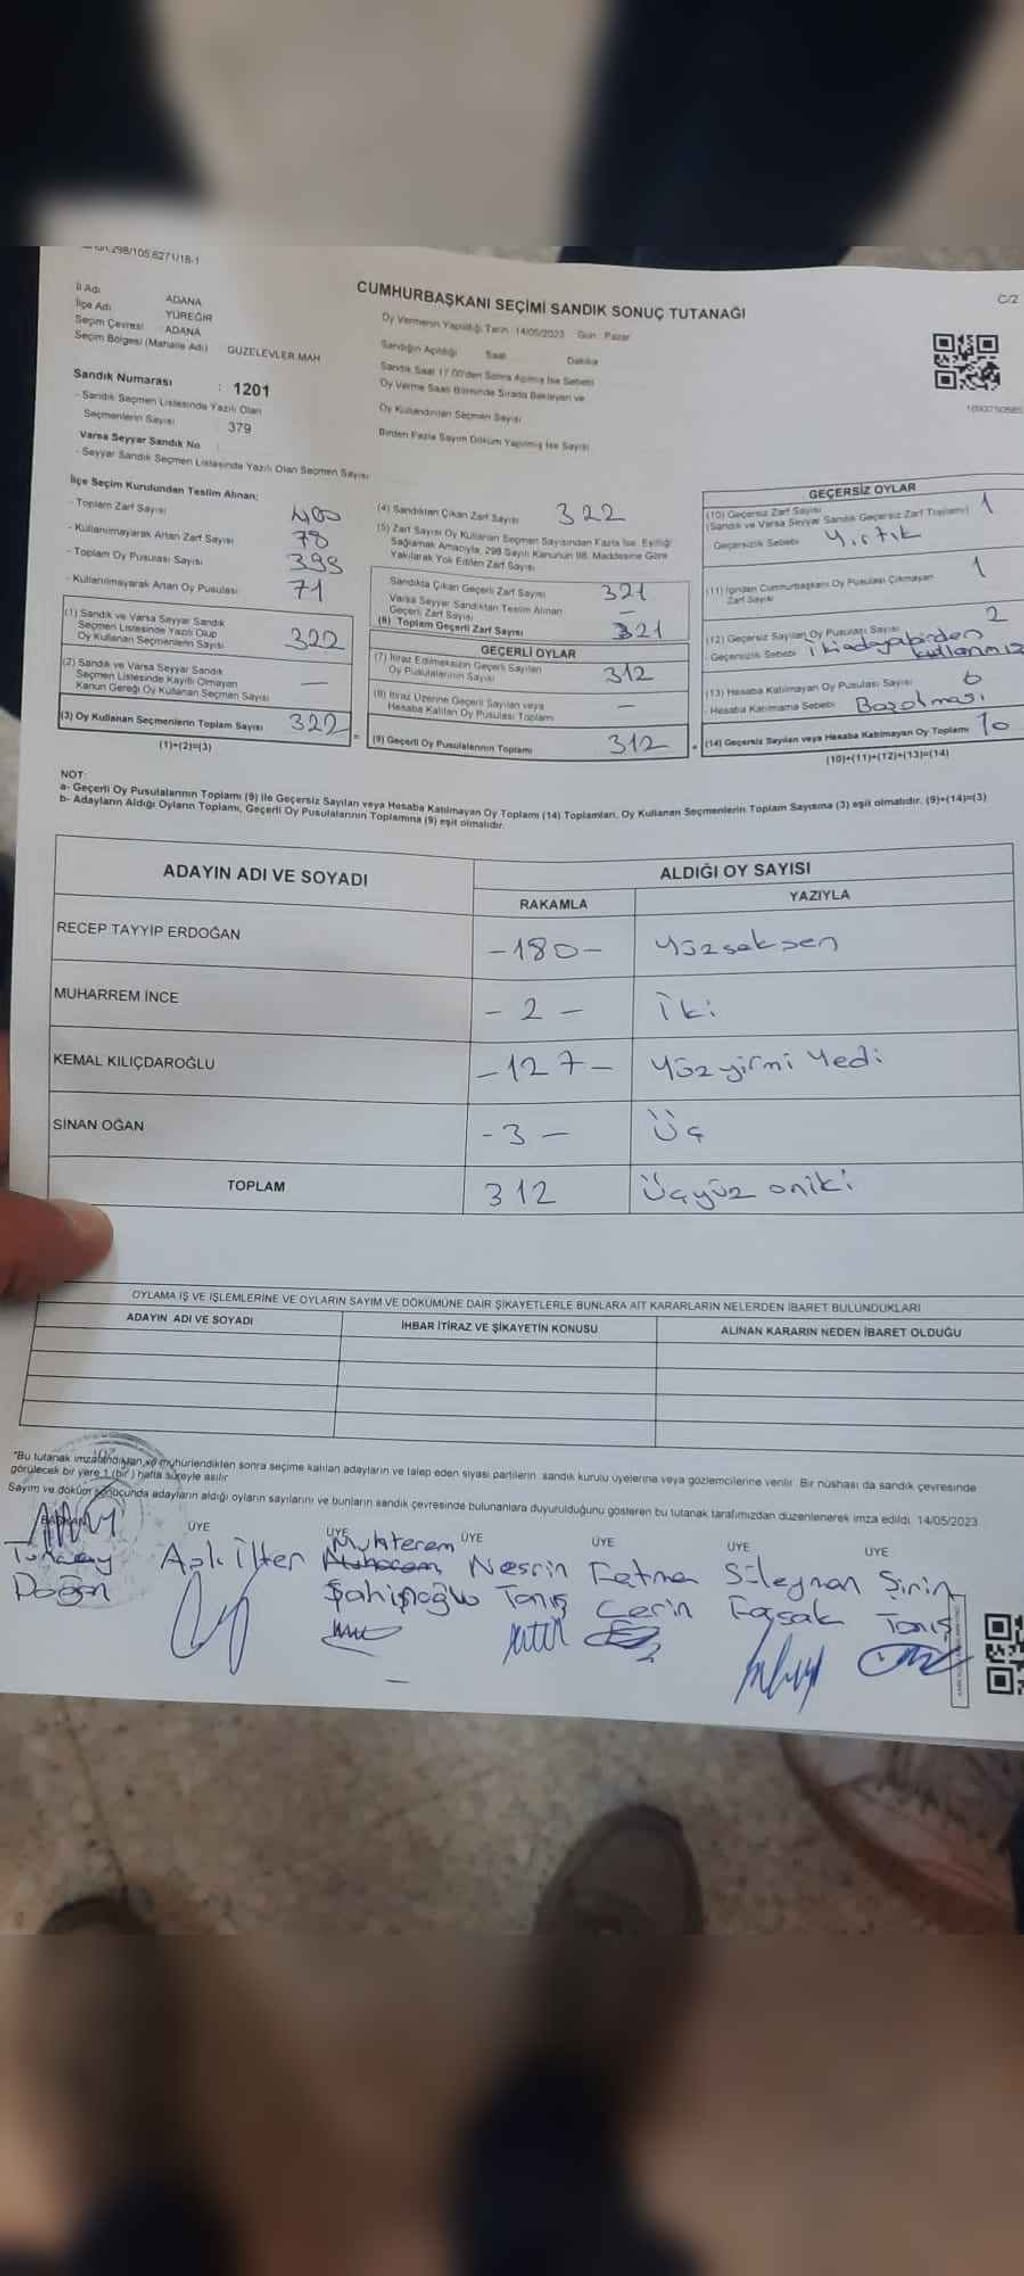 298/105.6271/18-1
C/2
CUMHURBAŞKANI SEÇİMİ SANDIK SONUÇ TUTANAĞI
İl Adı ADANA
İlçe Adı YÜREĞİR
Seçim Çevresi ADANA
Seçim Bölgesi (Mahalle Adı) GÜZELEVLER MAH
Sandık Numarası : 1201
- Sandık Seçmen Listesinde Yazılı Olan
Seçmenlerin Sayısı 379
Varsa Seyyar Sandık No
- Seyyar Sandık Seçmen Listesinde Yazılı Olan Seçmen Sayısı
Oy Vermenin Yapıldığı Tarih 14/05/2023 Gün Pazar
Sandığın Açıldığı Saat Dakika
Sandık Saat 17.00'den Sonra Açılmış İse Sebebi
Oy Verme Saati Bitiminde Sırada Bekleyen ve
Oy Kullandırılan Seçmen Sayısı
Birden Fazla Sayım Döküm Yapılmış İse Sayısı
İlçe Seçim Kurulundan Teslim Alınan:
- Toplam Zarf Sayısı 400
- Kullanılmayarak Artan Zarf Sayısı 78
- Toplam Oy Pusulası Sayısı
- Kullanılmayarak Artan Oy Pusulası 71
(1) Sandık ve Varsa Seyyar Sandık
Seçmen Listesinde Yazılı Olup
Oy Kullanan Seçmenlerin Sayısı 322
(2) Sandık ve Varsa Seyyar Sandık
Seçmen Listesinde Kayıtlı Olmayan
Kanun Gereği Oy Kullanan Seçmen Sayısı —
(3) Oy Kullanan Seçmenlerin Toplam Sayısı 322
(1)+(2)=(3)
(4) Sandıktan Çıkan Zarf Sayısı 322
(5) Zarf Sayısı Oy Kullanan Seçmen Sayısından Fazla İse, Eşitliği
Sağlamak Amacıyla, 298 Sayılı Kanunun 98. Maddesine Göre
Yakılarak Yok Edilen Zarf Sayısı
Sandıkta Çıkan Geçerli Zarf Sayısı 321
Varsa Seyyar Sandıktan Teslim Alınan
Geçerli Zarf Sayısı —
(6) Toplam Geçerli Zarf Sayısı 321
GEÇERLİ OYLAR
(7) İtiraz Edilmeksizin Geçerli Sayılan
Oy Pusulalarının Sayısı 312
(8) İtiraz Üzerine Geçerli Sayılan veya
Hesaba Katılan Oy Pusulası Toplamı —
(9) Geçerli Oy Pusulalarının Toplamı 312
GEÇERSİZ OYLAR
(10) Geçersiz Zarf Sayısı 1
(Sandık ve Varsa Seyyar Sandık Geçersiz Zarf Toplamı)
Geçersizlik Sebebi Yırtık
(11) İçinden Cumhurbaşkanı Oy Pusulası Çıkmayan
Zarf Sayısı 1
(12) Geçersiz Sayılan Oy Pusulası Sayısı 2
- Geçersizlik Sebebi iki adaya birden
(13) Hesaba Katılmayan Oy Pusulası Sayısı 6
- Hesaba Katılmama Sebebi
(14) Geçersiz Sayılan veya Hesaba Katılmayan Oy Toplamı 10
(10)+(11)+(12)+(13)=(14)
NOT:
a- Geçerli Oy Pusulalarının Toplamı (9) ile Geçersiz Sayılan veya Hesaba Katılmayan Oy Toplamı (14) Toplamları, Oy Kullanan Seçmenlerin Toplam Sayısına (3) eşit olmalıdır. (9)+(14)=(3)
b- Adayların Aldığı Oyların Toplamı, Geçerli Oy Pusulalarının Toplamına (9) eşit olmalıdır.
ADAYIN ADI VE SOYADI ALDIĞI OY SAYISI
RAKAMLA YAZIYLA
RECEP TAYYİP ERDOĞAN -180- Yüzseksen
MUHARREM İNCE - 2 - İki
KEMAL KILIÇDAROĞLU -127- Yüzyirmi Yedi
SİNAN OĞAN -3- Üç
TOPLAM 312 Üçyüz oniki
OYLAMA İŞ VE İŞLEMLERİNE VE OYLARIN SAYIM VE DÖKÜMÜNE DAİR ŞİKAYETLERLE BUNLARA AİT KARARLARIN NELERDEN İBARET BULUNDUKLARI
ADAYIN ADI VE SOYADI İHBAR İTİRAZ VE ŞİKAYETİN KONUSU ALINAN KARARIN NEDEN İBARET OLDUĞU
"Bu tutanak imzalandıktan ve mühürlendikten sonra seçime katılan adayların ve talep eden siyasi partilerin sandık kurulu üyelerine veya gözlemcilerine verilir. Bir nüshası da sandık çevresinde
görülecek bir yere 1 (bir) hafta süreyle asılır.
Sayım ve döküm sonucunda adayların aldığı oyların sayılarını ve bunların sandık çevresinde bulunanlara duyurulduğunu gösteren bu tutanak tarafımızdan düzenlenerek imza edildi. 14/05/2023
BAŞKAN ÜYE ÜYE ÜYE ÜYE ÜYE ÜYE
Tuncay Aslı İlter Muhterem Nesrin Fatma Süleyman Şirin
Doğan Şahinoğlu Tanış Tanış